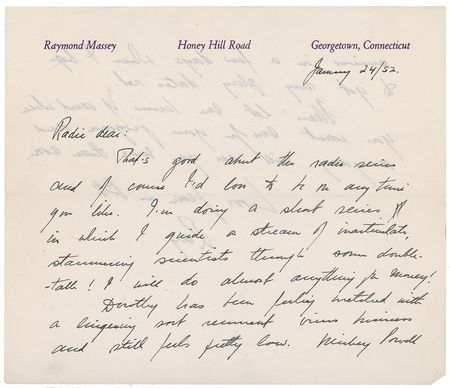 Raymond Massey Honey Hill Road Georgetown, Connecticut
January 24/52.
Radie dear:
That's good about the radio series
and of course I'd love to be on any time
you like. I'm doing a short series
in which I guide a stream of inarticulate,
stammering scientists through some double-
-talk! I will do almost anything for money!
Dorothy has been feeling wretched with
a lingering sort virus business
and still feels pretty low. Powell